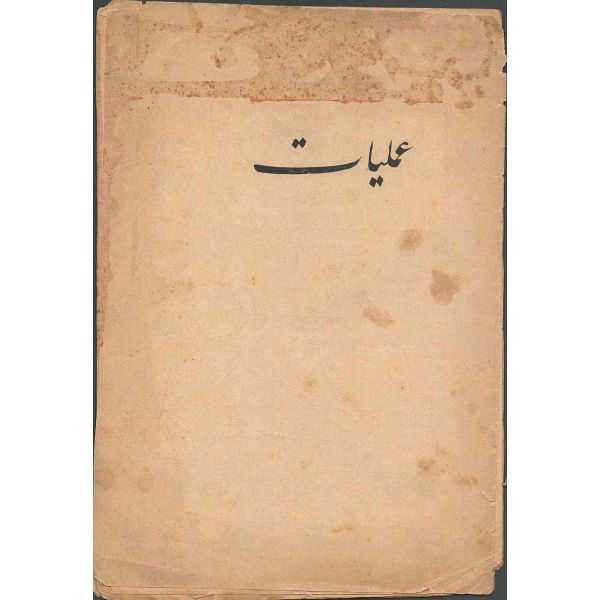 عملیات